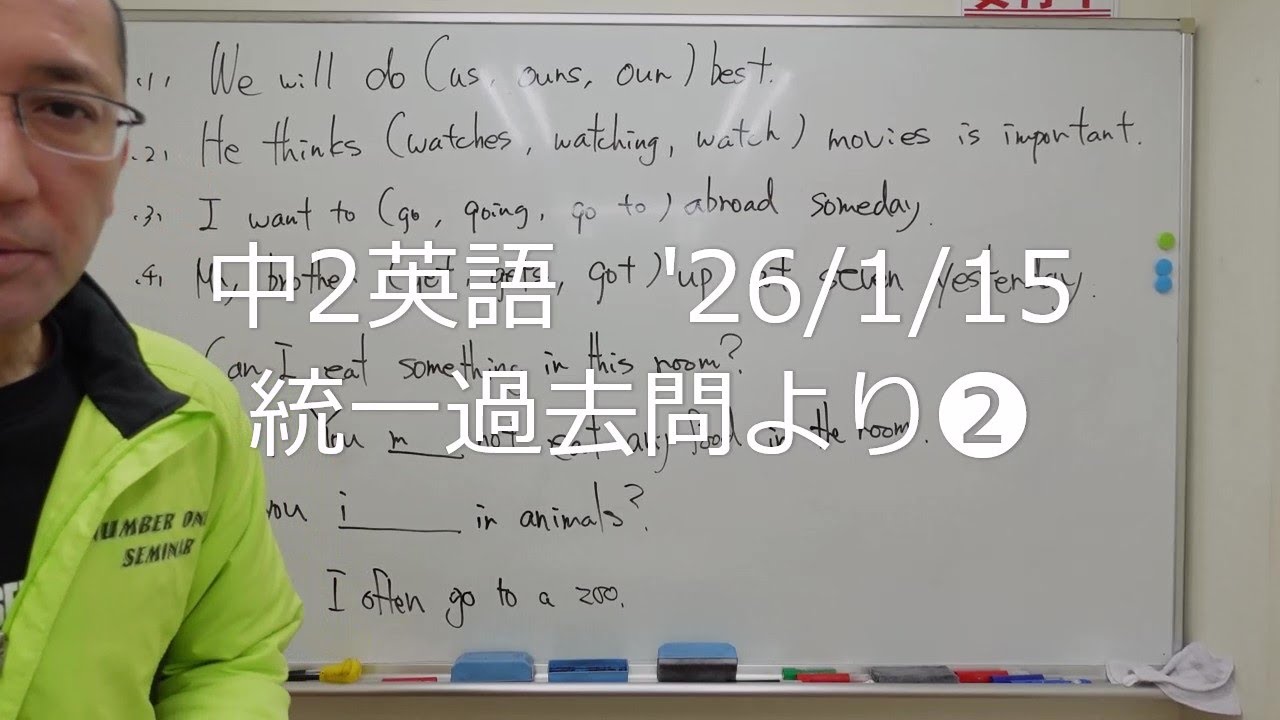 .1, We will do (us, ours, our) best.
.2, He thinks (watches, watching, watch) movies is important.
.3, I want to (go, going, go to) abroad someday.
.4, My brother (get, gets, got) up at seven yesterday.
中2英語 '26/1/15
Can I eat something in this room?
統一過去問より❷
You m____ not eat any food in the room.
you i______ in animals?
I often go to a zoo.
NUMBER ONE
SEMINAR